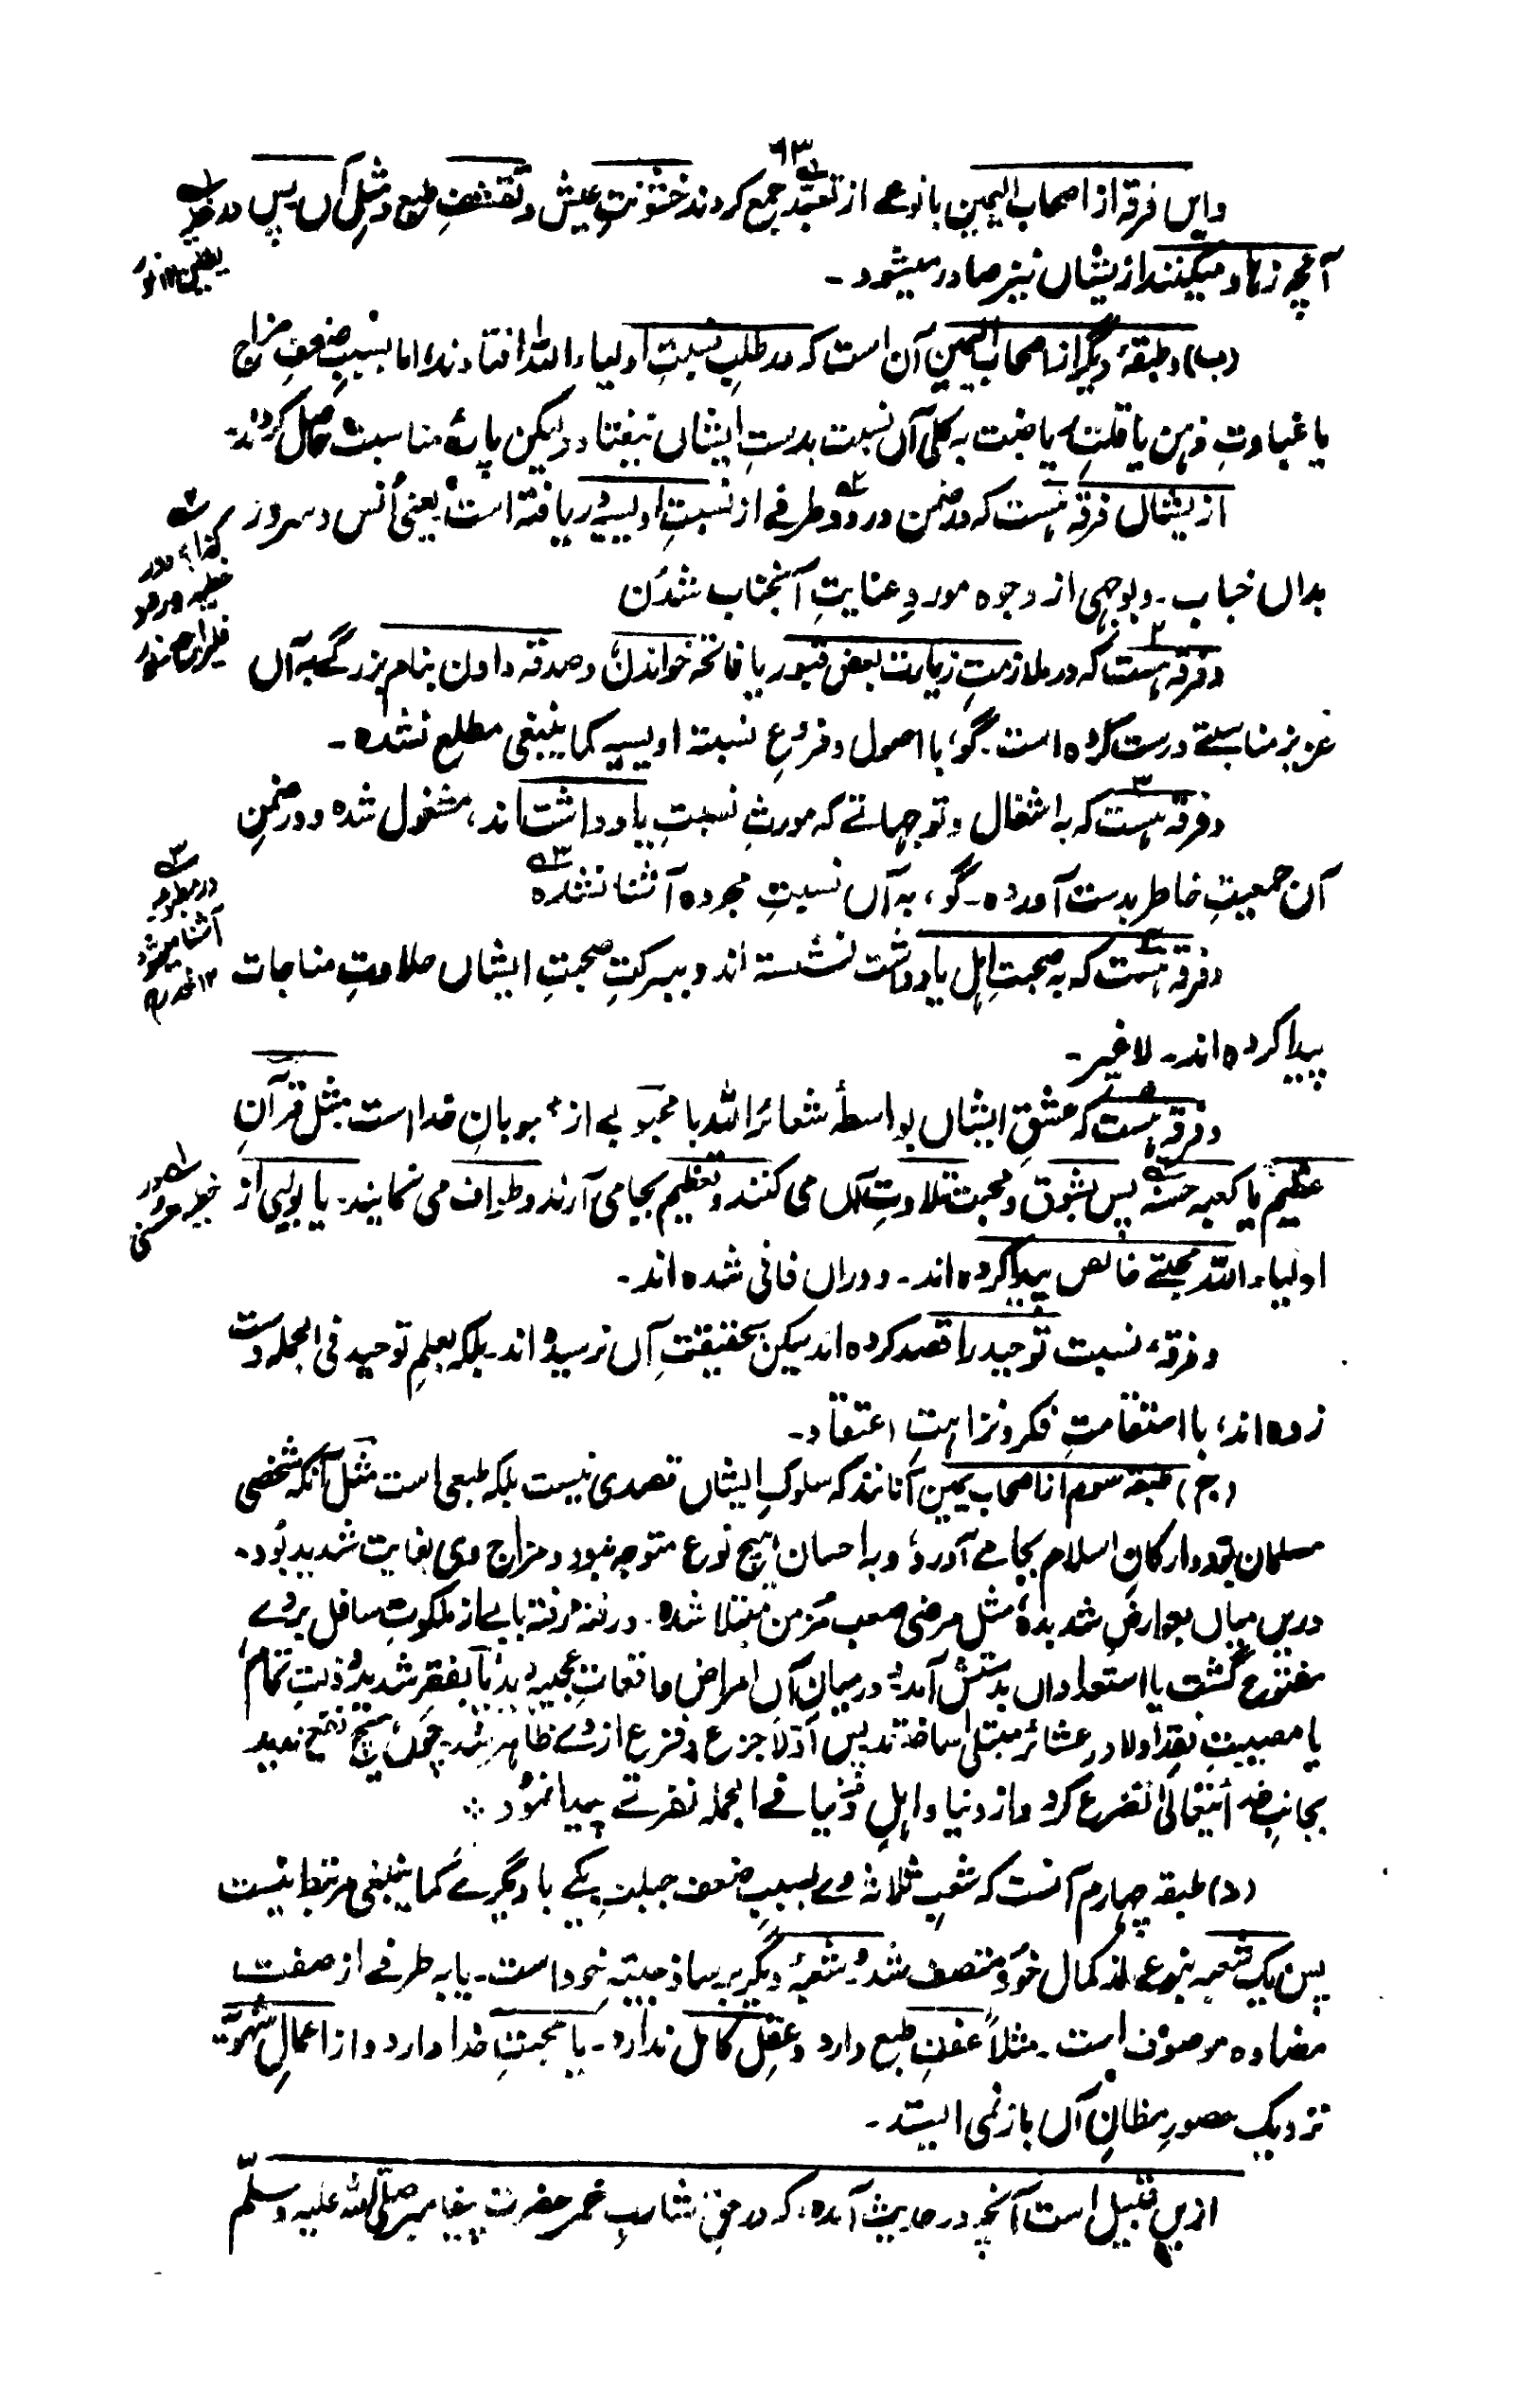 ٩٣
وایں فرقہ از اصحاب الیمین بانوعے از تعبّد جمع کردند خشونتِ عیش و تقشفِ طبع و مثلِ آں پس در
آنچہ زہاد میکنند ازیشاں نیز صادر میشود۔
(ب) و طبقۂ دیگر از اصحاب الیمین آن است کہ در طلبِ نسبتِ اولیاء اللہ افتادند، اما بسببِ ضعفِ مزاج
یا غباوتِ ذہن یا قلتِ ریاضت بہ کلی آں نسبت بدستِ ایشاں نیفتاد ولیکن پایۂ مناسبت حاصل کردند۔
ازیشاں فرقہ ہست کہ در ضمن درود طرفے از نسبتِ اویسیہ دریافتہ است یعنی اُنس و سرور
بداں جناب۔ و بوجہی از وجوہ موردِ عنایتِ آنجناب شدن
و فرقہ ہست کہ در ملازمتِ زیارت بعض قبور یا فاتحہ خواندن و صدقہ دادن بنام بزرگے بہ آں
عزیز مناسبتے درست کردہ است۔ گو، با اصول و فروعِ نسبتہ اویسیہ کما ینبغی مطلع نشدہ۔
و فرقہ ہست کہ بہ اشغال و توجہاتے کہ مورثِ نسبتِ یادداشت اند، مشغول شدہ و در ضمنِ
آن جمعیتِ خاطر بدست آوردہ۔ گو، بہ آں نسبتِ مجردہ آشنا نشدہ
و فرقہ ہست کہ بہ صحبتِ اہل یادداشت نشستہ اند و ببرکتِ صحبتِ ایشاں حلاوتِ مناجات
پیدا کردہ اند۔ لا غیر۔
و فرقہ ہست کہ عشقِ ایشاں بواسطۂ شعائر اللہ با محبوبے از محبوبانِ خدا است مثل قرآنِ
عظیم یا کعبہ حسنہ پس بشوق و محبت تلاوتِ آں می کنند و تعظیم بجا می آرند و طواف می نمایند۔ یا بولیی از
اولیاء اللہ محبتے خالص پیدا کردہ اند۔ و دراں فانی شدہ اند۔
و فرقۂ نسبت توحید را قصد کردہ اند لیکن بحقیقتِ آں نرسیدہ اند۔ بلکہ بعلمِ توحید فی الجملہ دست
زدہ اند، با استقامتِ فکر و نزاہتِ اعتقاد۔
(ج) طبقہ سوم از اصحاب یمین آنانند کہ سلوکِ ایشاں قصدی نیست بلکہ طبعی است مثل آنکہ شخصی
مسلمان بود و ارکانِ اسلام بجامے آورد، و بہ احسان ہیچ نوع متوجہ نبود و مزاج وی بغایت شدید بود۔
دریں میاں بعوارضِ شدیدہ مثل مرضی صعب مُزمن مبتلا شدہ۔ و رفتہ رفتہ بابے از ملکوتِ سافل بروے
مفتوح گشت یا استعداداں بدستش آمد و درمیانِ آں امراض واقعاتِ عجیبہ دید، یا بفقرِ شدید و ذلتِ تمام
یا مصیبتِ فقدِ اولاد و عشائر مبتلی ساختند پس اوّلاً جزع و فزع از وے ظاہر شد، چوں ہیچ نفع ندید
بجانبِ خدا تعالیٰ تضرع کرد و از دنیا و اہلِ دُنیا فے الجملہ نفرتے پیدا نمود ؞
(د) طبقہ چہارم آنست کہ شعبِ ثلاثہ وے بسببِ ضعف جبلت یکے با دیگرے کما ینبغی مرتبط نیست
پس یک شعبہ بنوعے از کمال خود متصف شد و شعبۂ دیگر بر سذاجیتہِ خود است۔ یا بہ طرفے از صفت
مضادہ موصوف است۔ مثلاً عفتِ طبع دارد و عقلِ کامل ندارد۔ یا محبتِ خدا دارد و از اعمالِ شہویّہ
نزدیک حضورِ مظانِ آں باز نمی ایستد۔
ازیں قبیل است آنچہ در حدیث آمدہ، کہ در حقِ شاربِ خمر حضرت پیغامبر صلی اللہ علیہ وسلّم